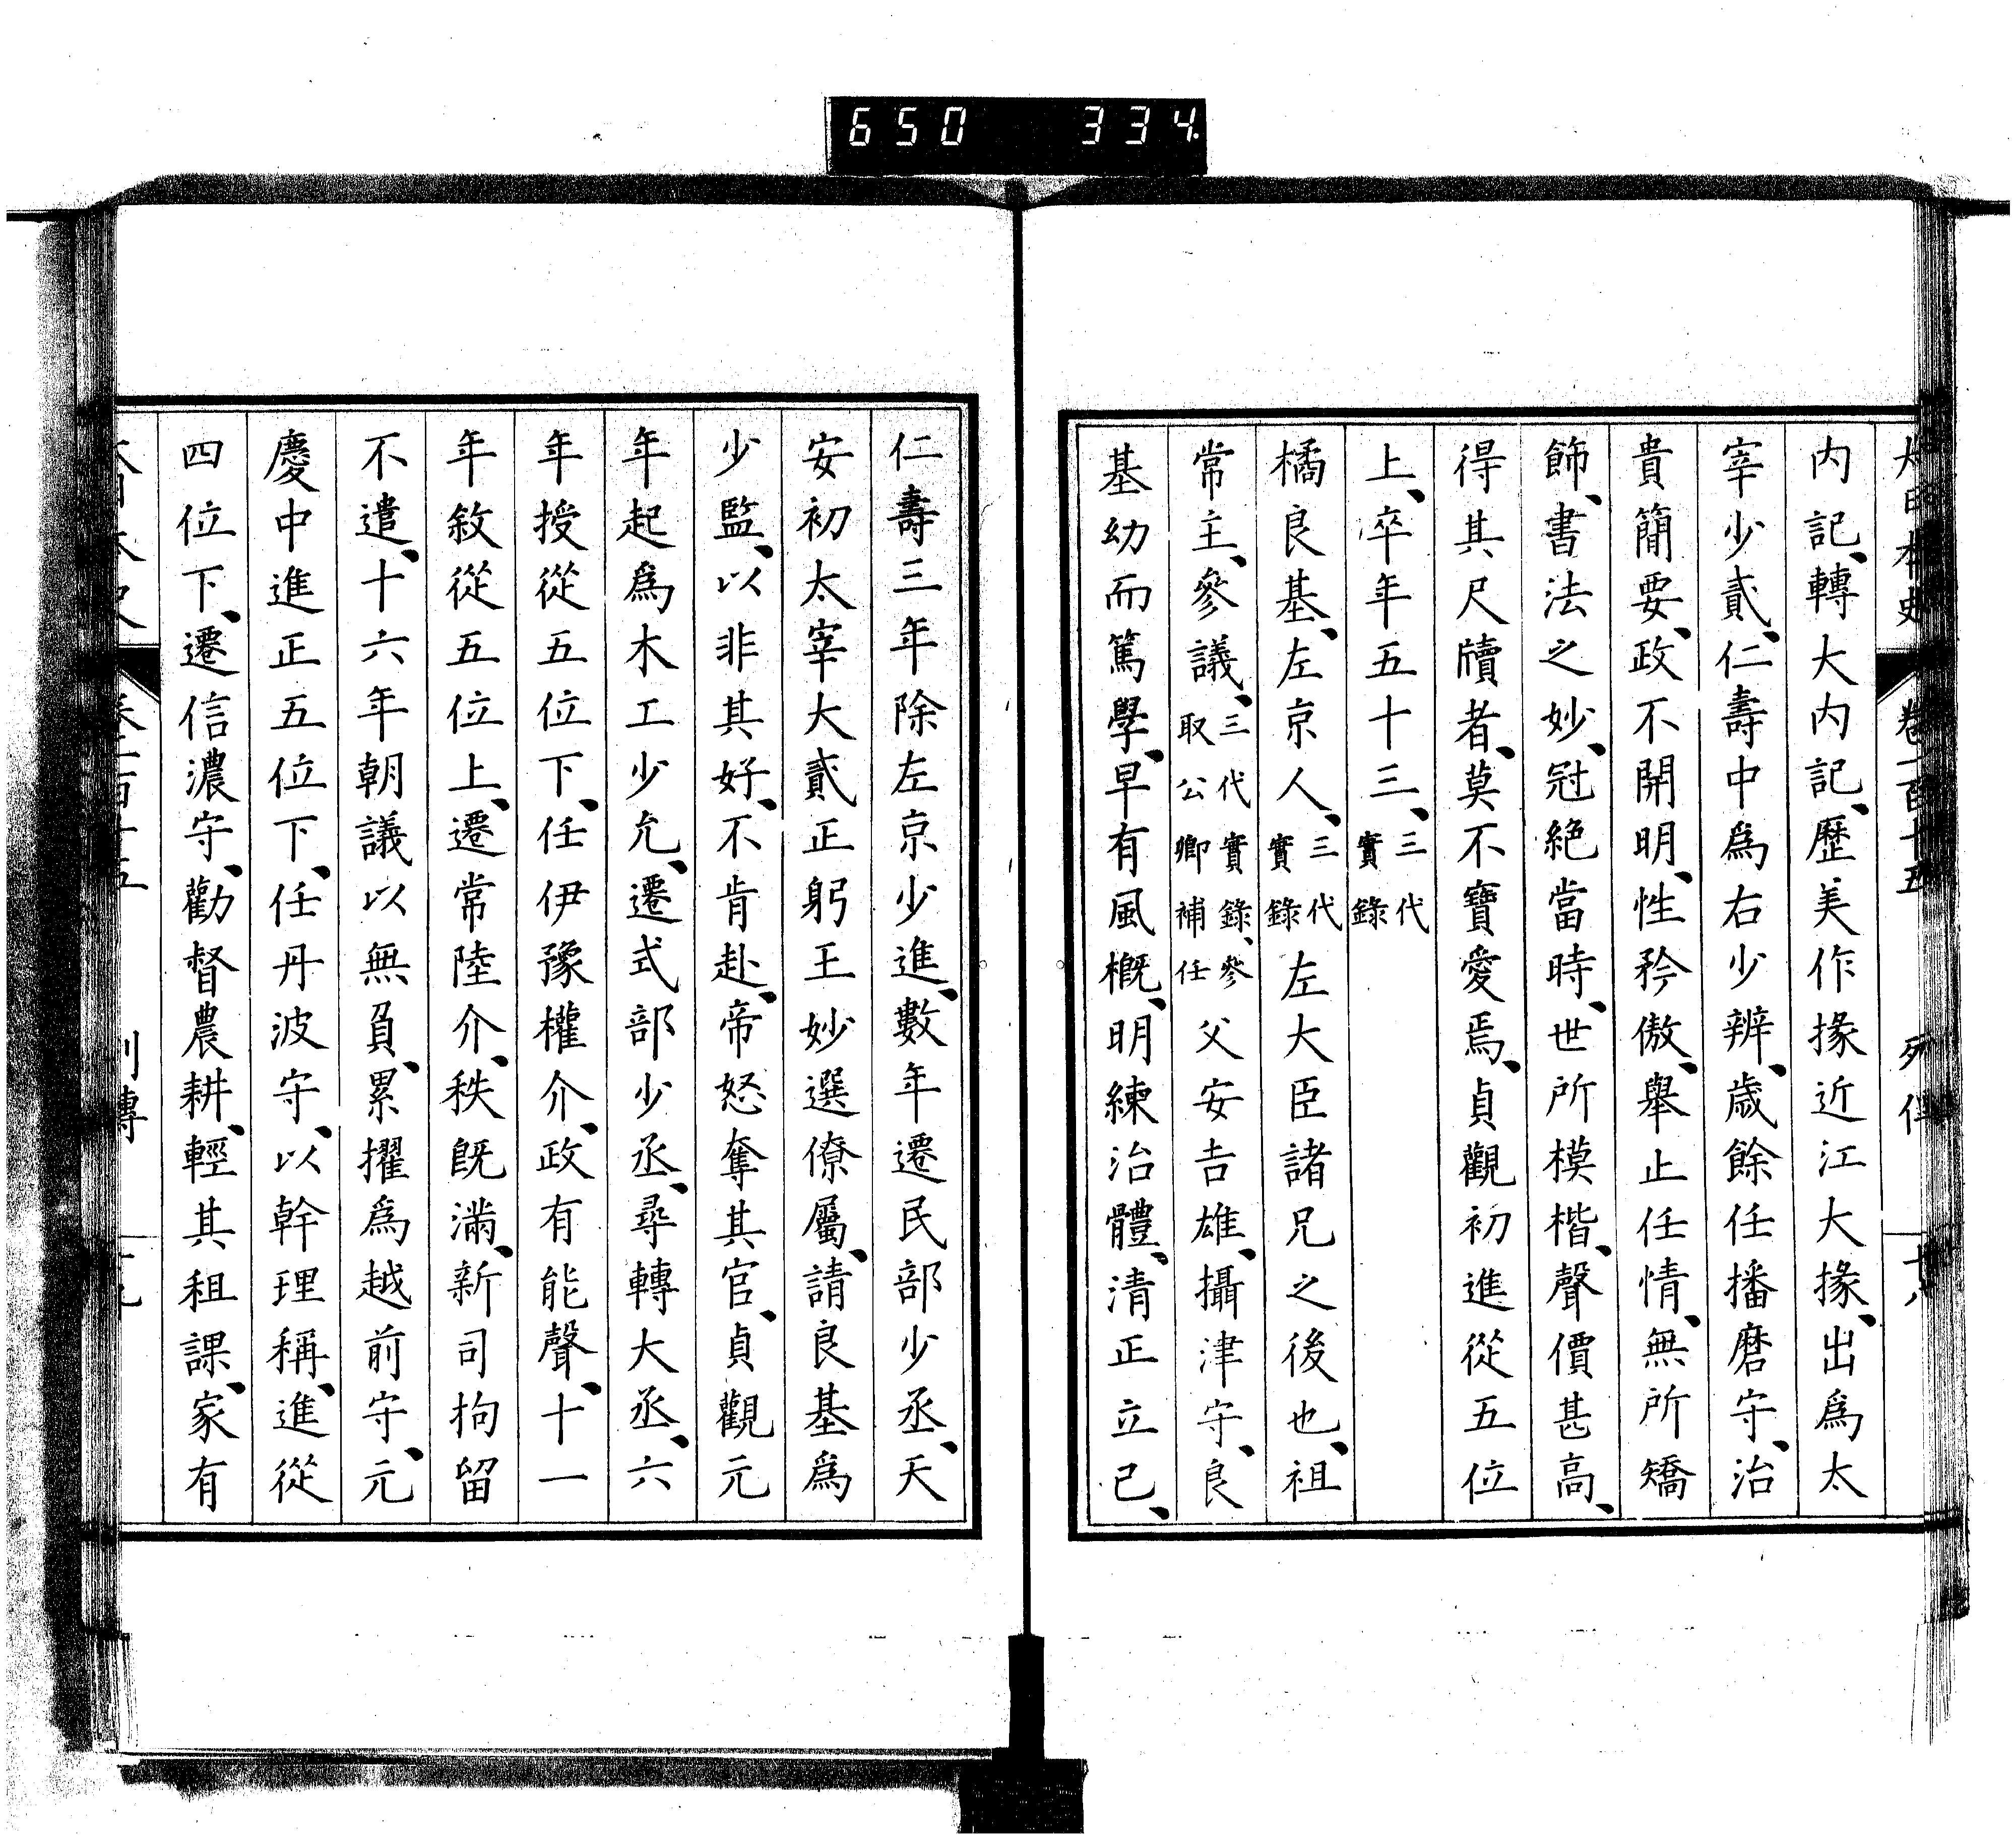 650 334
大日本史 卷一百十五 列傳 十八
内記、轉大内記、歷美作掾近江大掾、出爲太
宰少貳、仁壽中爲右少辨、歳餘任播磨守、治
貴簡要、政不開明、性矜傲、舉止任情、無所矯
飾、書法之妙、冠絶當時、世所模楷、聲價甚高、
得其尺牘者、莫不寶愛焉、貞觀初進從五位
上、卒年五十三、三代實錄
橘良基、左京人、三代實錄左大臣諸兄之後也、祖
常主、參議、三代實錄、參取公卿補任父安吉雄、攝津守、良
基幼而篤學、早有風概、明練治體、清正立己、
仁壽三年除左京少進、數年遷民部少丞、天
安初太宰大貳正躬王妙選僚屬、請良基爲
少監、以非其好、不肯赴、帝怒奪其官、貞觀元
年起爲木工少允、遷式部少丞、尋轉大丞、六
年授從五位下、任伊豫權介、政有能聲、十一
年敘從五位上、遷常陸介、秩既滿、新司拘留
不遣、十六年朝議以無負、累擢爲越前守、元
慶中進正五位下、任丹波守、以幹理稱、進從
四位下、遷信濃守、勸督農耕、輕其租課、家有